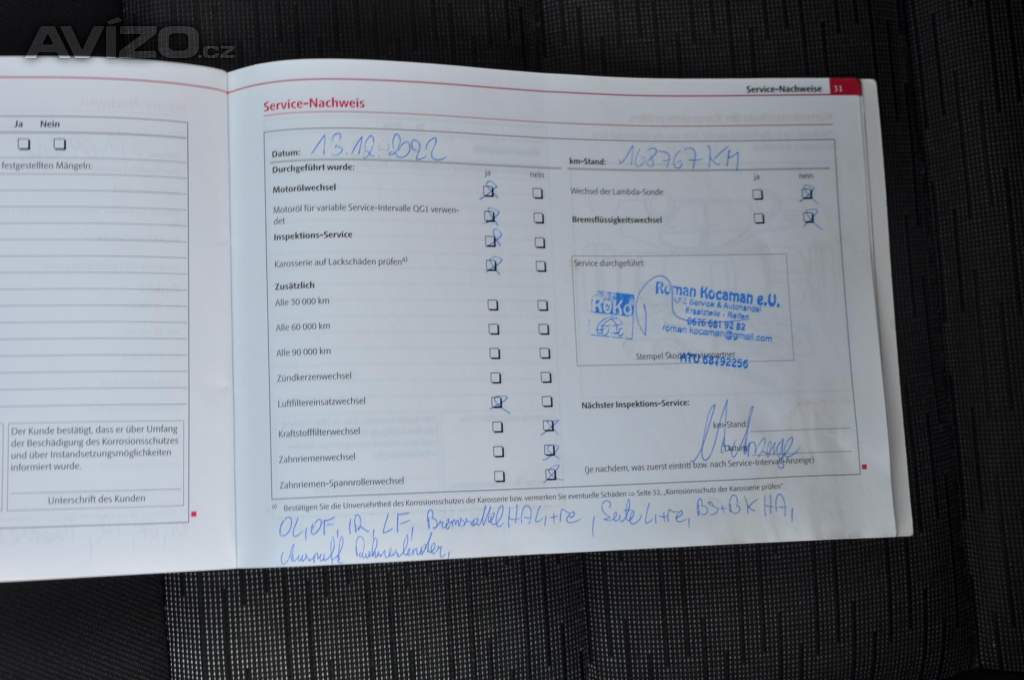 AVÍZO.cz
Ja Nein
festgestellten Mängeln:
Der Kunde bestätigt, dass er über Umfang
der Beschädigung des Korrosionsschutzes
und über Instandsetzungsmöglichkeiten
informiert wurde.
Unterschrift des Kunden
Service-Nachweise 31
Service-Nachweis
Datum: 13.12.2022
Durchgeführt wurde:
ja nein
Motorölwechsel
Motoröl für variable Service-Intervalle QG1 verwen-
det
Inspektions-Service
Karosserie auf Lackschäden prüfen
Zusätzlich
Alle 30 000 km
Alle 60 000 km
Alle 90 000 km
Zündkerzenwechsel
Luftfiltereinsatzwechsel
Kraftstofffilterwechsel
Zahnriemenwechsel
Zahnriemen-Spannrollenwechsel
km-Stand: 168767 KM
ja nein
Wechsel der Lambda-Sonde
Bremsflüssigkeitswechsel
Service durchgeführt:
RoKo
Roman Kocaman e.U.
KFZ Service & Autohandel
Ersatzteile - Reifen
0676 681 92 82
roman.kocaman@gmail.com
Stempel Škoda Servicepartner
ATU 68792256
Nächster Inspektions-Service:
km-Stand:
Datum:
(je nachdem, was zuerst eintritt bzw. nach Service-Intervall-Anzeige)
Bestätigen Sie die Unversehrtheit des Korrosionsschutzes der Karosserie bzw. vermerken Sie eventuelle Schäden ⇒ Seite 52, „Korrosionsschutz der Karosserie prüfen“.
ÖL, ÖF, IR, LF, Bremssattel HA Li+re, Seile Li+re, BS+BK HA,